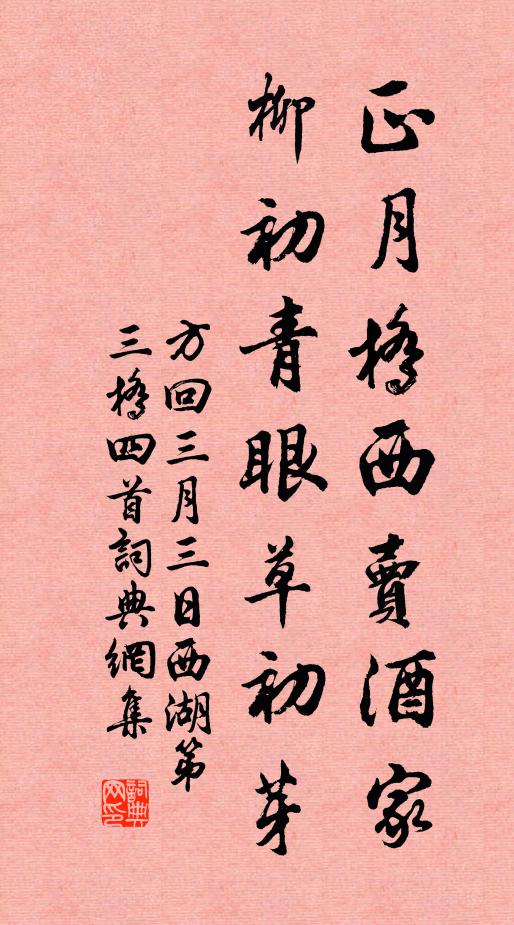 正月橋西賣酒家
柳初青眼草初芽
方回三月三日西湖第
三橋四首詞典網集
詞典網印